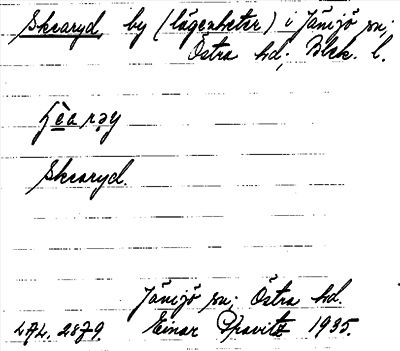 Skearyd, by (lägenheter) i Jämjö sn;
Östra hd; Blek. l.
Skearyd.
Jämjö sn; Östra hd.
LAL. 2879. Einar 1935.